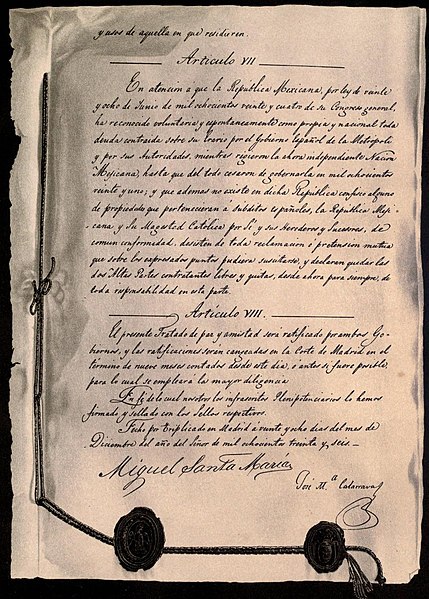 y usos de aquella en que residieren.
Articulo VII
En atencion á que la República Mexicana, por ley de veinte
y ocho de Junio de mil ochocientos veinte y cuatro de su Congreso general,
ha reconocido voluntaria y espontaneamente como propia y nacional toda
deuda contraida sobre su Erario por el Gobierno Español de la Metropoli
y por sus Autoridades, mientras rigieron la ahora independiente Nacion
Mejicana, hasta que del todo cesaron de gobernarla en mil ochocientos
veinte y uno; y que ademas no existe en dicha República confisco alguno
de propiedades que pertenecieran á súbditos españoles, la República Meji-
cana y Su Magestad Catolica por Sí, y sus Herederos y Sucesores, de
comun conformidad, desisten de toda reclamacion ó pretension mutua
que sobre los expresados puntos pudiera suscitarse, y declaran quedar las
dos Altas Partes contratantes libres y quitas, desde ahora para siempre, de
toda responsabilidad en esta parte.
Articulo VIII.
El presente Tratado de paz y amistad será ratificado por ambos Go-
biernos, y las ratificaciones serán cangeadas en la Corte de Madrid en el
termino de nueve meses contados desde este dia, ó antes si fuere posible,
para lo cual se empleara la mayor diligencia
En fé de lo cual nosotros los infrascritos Plenipotenciarios lo hemos
firmado y sellado con los Sellos respectivos.
Fecho por triplicado en Madrid á veinte y ocho dias del mes de
Diciembre del año del Señor de mil ochocientos treinta y seis.—
Miguel Santa María
José M.ª Calatrava